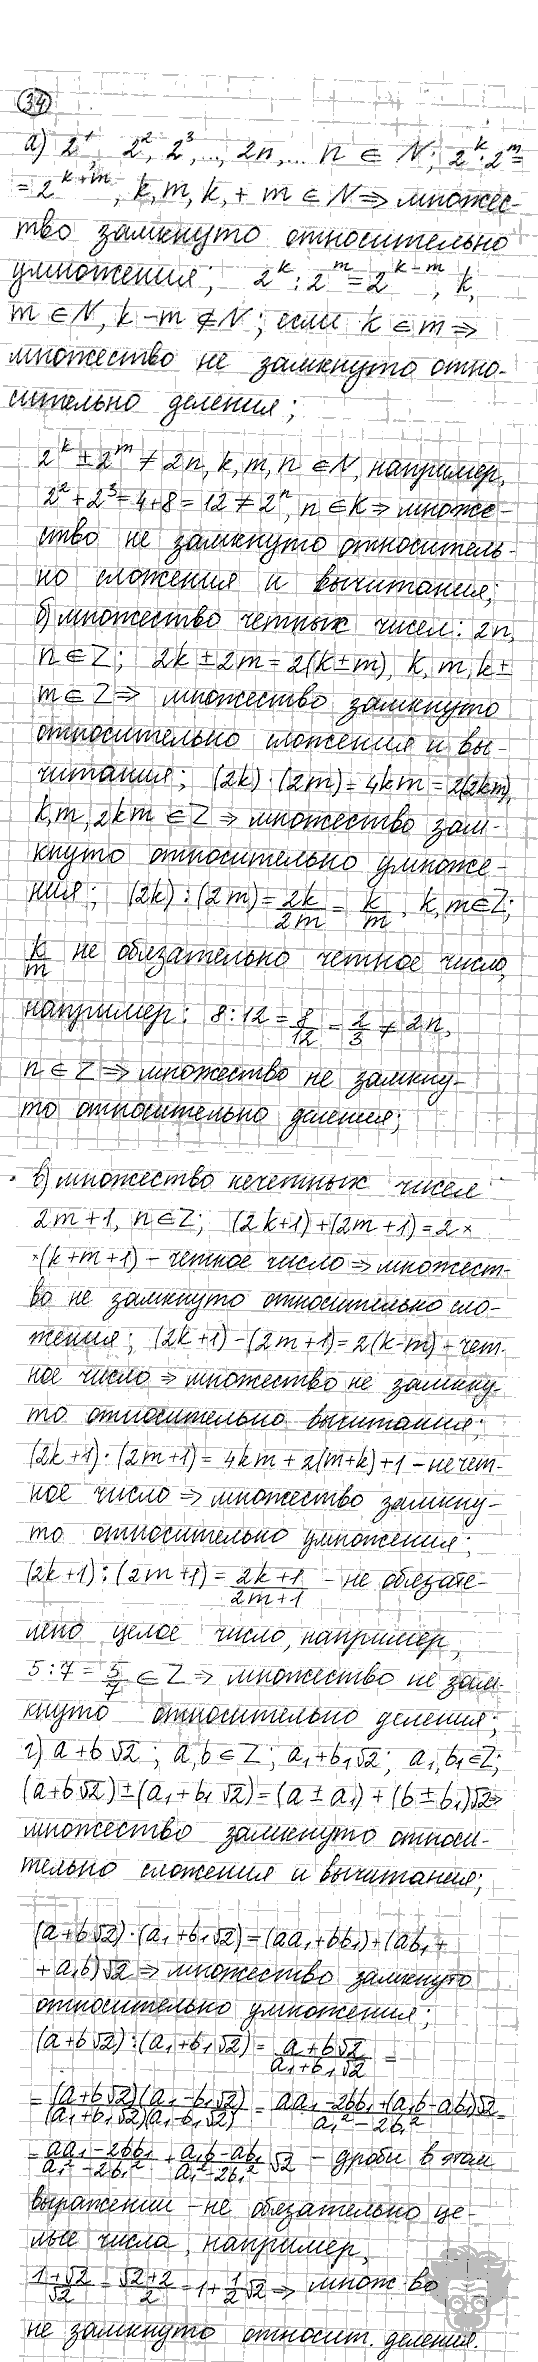 34
а) 2¹, 2², 2³, ..., 2n, ... n ∈ N; 2ᵏ·2ᵐ =
= 2ᵏ⁺ᵐ, k, m, k, + m ∈ N ⇒ множес-
тво замкнуто относительно
умножения; 2ᵏ : 2ᵐ = 2ᵏ⁻ᵐ, k,
m ∈ N, k - m ∉ N; если k ∈ m ⇒
множество не замкнуто отно-
сительно деления;
2ᵏ ± 2ᵐ ≠ 2n, k, m, n ∈ N, например,
2² + 2³ = 4 + 8 = 12 ≠ 2ⁿ, n ∈ K ⇒ множе-
ство не замкнуто относитель-
но сложения и вычитания;
б) множество четных чисел: 2n,
n ∈ Z; 2k ± 2m = 2(k ± m), k, m, k ±
m ∈ Z ⇒ множество замкнуто
относительно сложения и вы-
читания; (2k) · (2m) = 4km = 2(2km),
k, m, 2km ∈ Z ⇒ множество зам-
кнуто относительно умноже-
ния; (2k) : (2m) = 2k/2m = k/m, k, m ∈ Z;
k/m не обязательно четное число,
например: 8 : 12 = 8/12 = 2/3 ≠ 2n,
n ∈ Z ⇒ множество не замкну-
то относительно деления;
в) множество нечетных чисел
2m + 1, n ∈ Z; (2k+1) + (2m+1) = 2 ×
×(k + m + 1) - четное число ⇒ множест-
во не замкнуто относительно сло-
жения; (2k+1) - (2m+1) = 2(k-m) - чет-
ное число ⇒ множество не замкну-
то относительно вычитания;
(2k+1) · (2m+1) = 4km + 2(m+k) + 1 - нечет-
ное число ⇒ множество замкну-
то относительно умножения;
(2k+1) : (2m+1) = 2k+1/2m+1 - не обязате-
лено целое число, например,
5 : 7 = 5/7 ∈ Z ⇒ множество не зам-
кнуто относительно деления;
г) a + b√2; a, b ∈ Z; a₁ + b₁√2; a₁, b₁ ∈ Z;
(a + b√2) ± (a₁ + b₁√2) = (a ± a₁) + (b ± b₁)√2 ⇒
множество замкнуто относи-
тельно сложения и вычитания;
(a + b√2) · (a₁ + b₁√2) = (aa₁ + bb₁) + (ab₁ +
+ a₁b)√2 ⇒ множество замкнуто
относительно умножения;
(a + b√2) : (a₁ + b₁√2) = a + b√2/a₁ + b₁√2 =
= (a + b√2)(a₁ - b₁√2)/(a₁ + b₁√2)(a₁ - b₁√2) = aa₁ - 2bb₁ + (a₁b - ab₁)√2/a₁² - 2b₁² =
= aa₁ - 2bb₁/a₁² - 2b₁² + a₁b - ab₁/a₁² - 2b₁² √2 - дроби в этом
выражении - не обязательно це-
лые числа, например,
1 + √2/√2 = √2 + 2/2 = 1 + 1/2 √2 ⇒ множ-во
не замкнуто относит. деления.